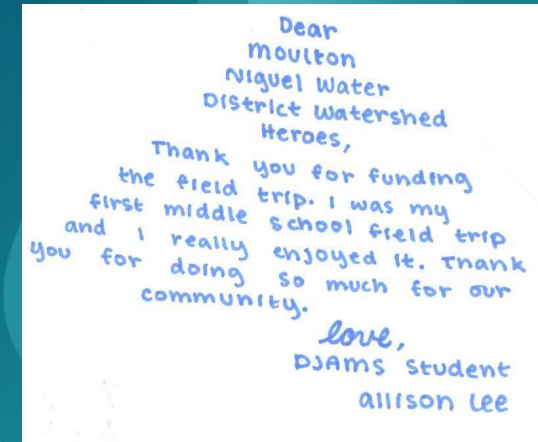 Dear
Moulton
Niguel Water
District Watershed
Heroes,
Thank you for funding
the field trip. I was my
first middle school field trip
and I really enjoyed it. Thank
you for doing so much for our
community.
love,
DJAMS Student
allison Lee